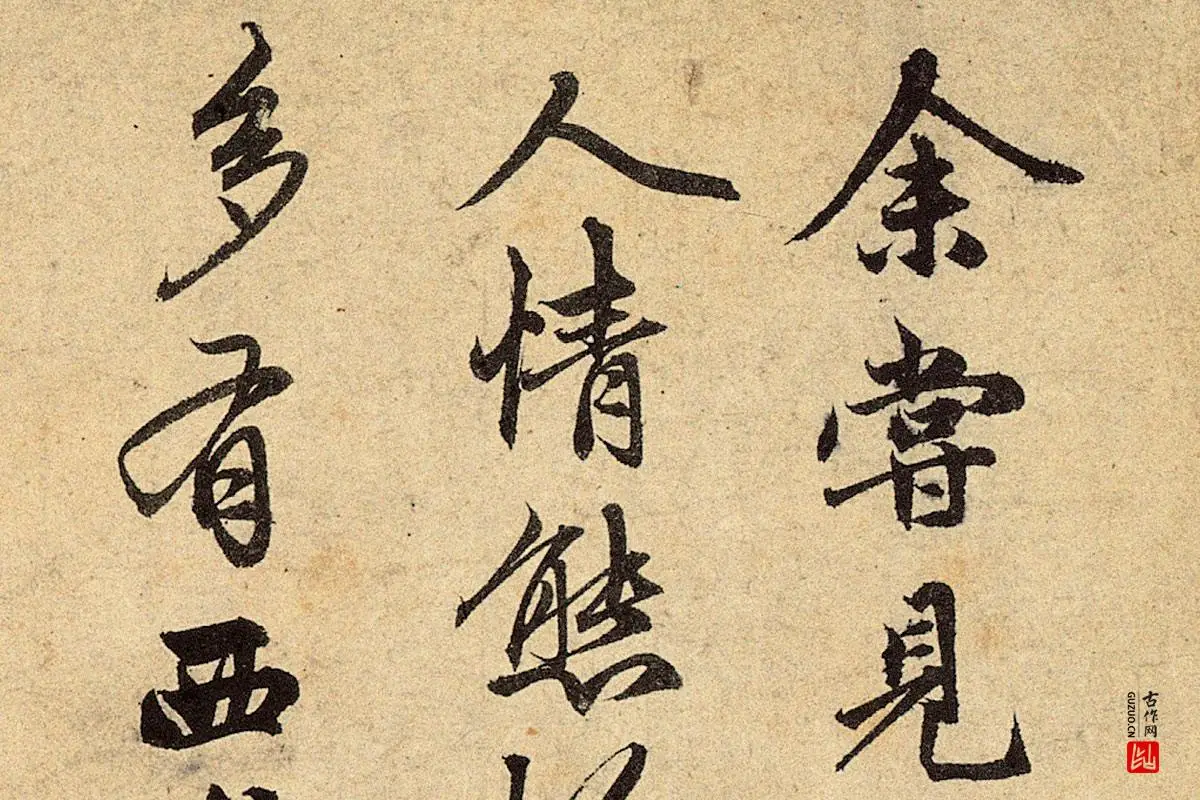 余嘗見
人情態
多有西
古作网
GUZUO.CN